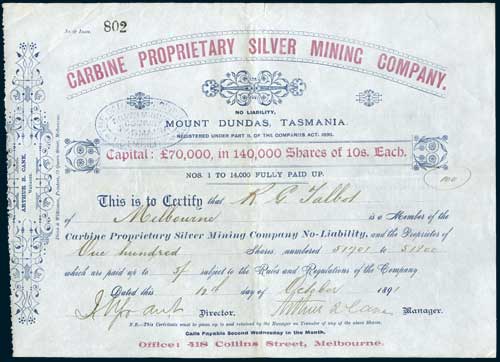 No. of Issue. 802
CARBINE PROPRIETARY SILVER MINING COMPANY.
NO LIABILITY,
MOUNT DUNDAS, TASMANIA.
REGISTERED UNDER PART II. OF THE COMPANIES ACT: 1890.
Capital: £70,000, in 140,000 Shares of 10s. Each.
NOS. 1 TO 14,000 FULLY PAID UP.
100
This is to Certify that R G Talbot
of Melbourne is a Member of the
Carbine Proprietary Silver Mining Company No-Liability, and the Proprietor of
One hundred Shares, numbered 51701 to 51800
which are paid up to 5/ subject to the Rules and Regulations of the Company
Dated this 12th day of October 1891
Director. Arthur R Cane Manager.
N.B.—This Certificate must be given up to and retained by the Manager on Transfer of any of the above Shares.
Calls Payable Second Wednesday in the Month.
Office: 418 Collins Street, Melbourne.
ARTHUR R. CANE,
Manager.